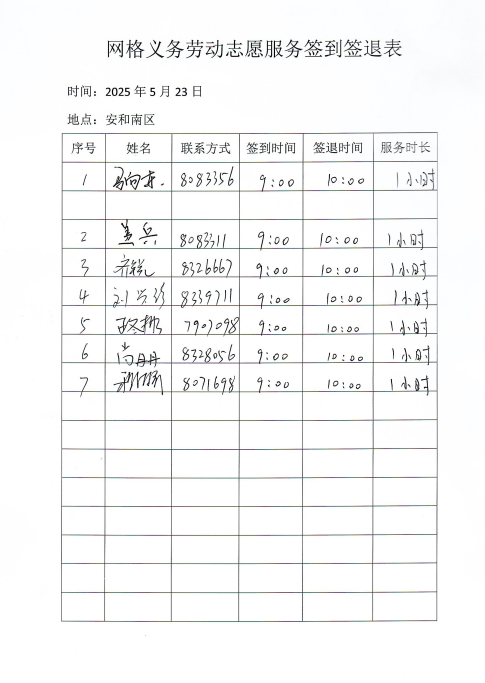 网格义务劳动志愿服务签到签退表
时间：2025 年 5 月 23 日
地点：安和南区
序号 姓名 联系方式 签到时间 签退时间 服务时长
1 8083356 9:00 10:00 1小时
2 盖兵 8083311 9:00 10:00 1小时
3 齐锐 8326667 9:00 10:00 1小时
4 8339711 9:00 10:00 1小时
5 7907098 9:00 10:00 1小时
6 尚丹丹 8328056 9:00 10:00 1小时
7 8071698 9:00 10:00 1小时